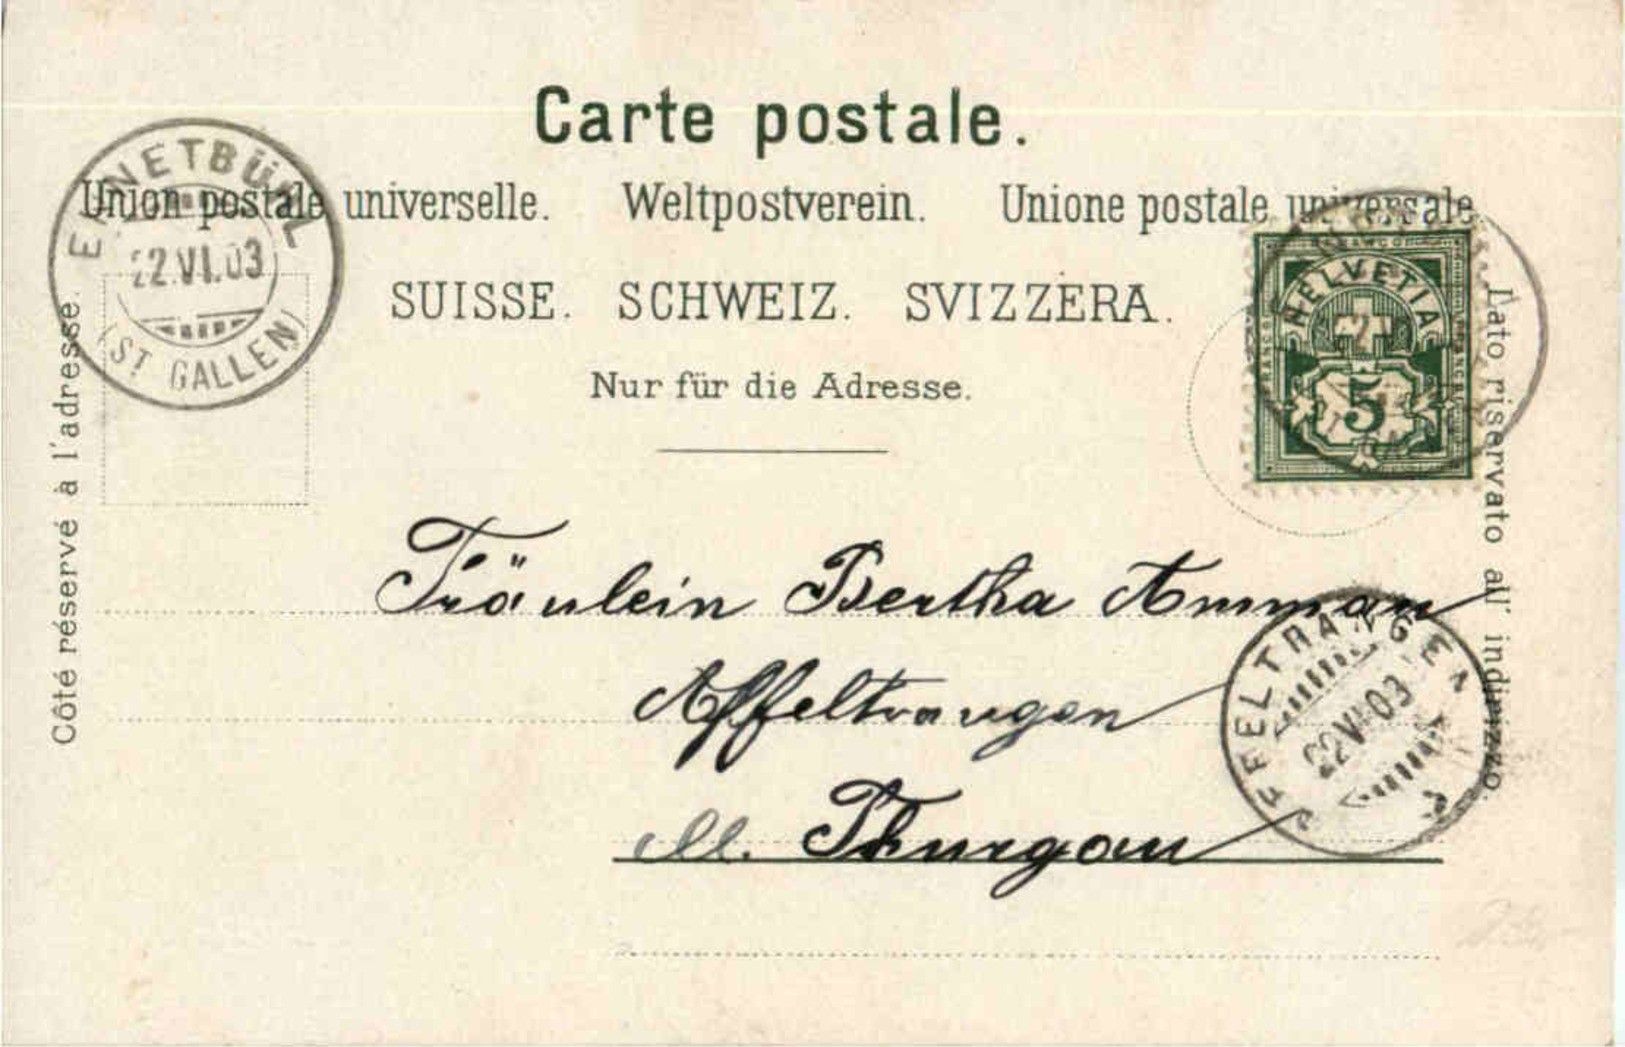 Carte postale.
Union postale universelle. Weltpostverein. Unione postale universale
SUISSE. SCHWEIZ. SVIZZERA.
Nur für die Adresse.
ENNETBÜHL
22.VI.03
(ST GALLEN)
FRANCO
HELVETIA
5
Côté réservé à l'adresse.
Lato riservato all' indirizzo.
Fräulein Bertha Amman
Affeltrangen
Thurgau
AFFELTRANGEN
22 VI 03